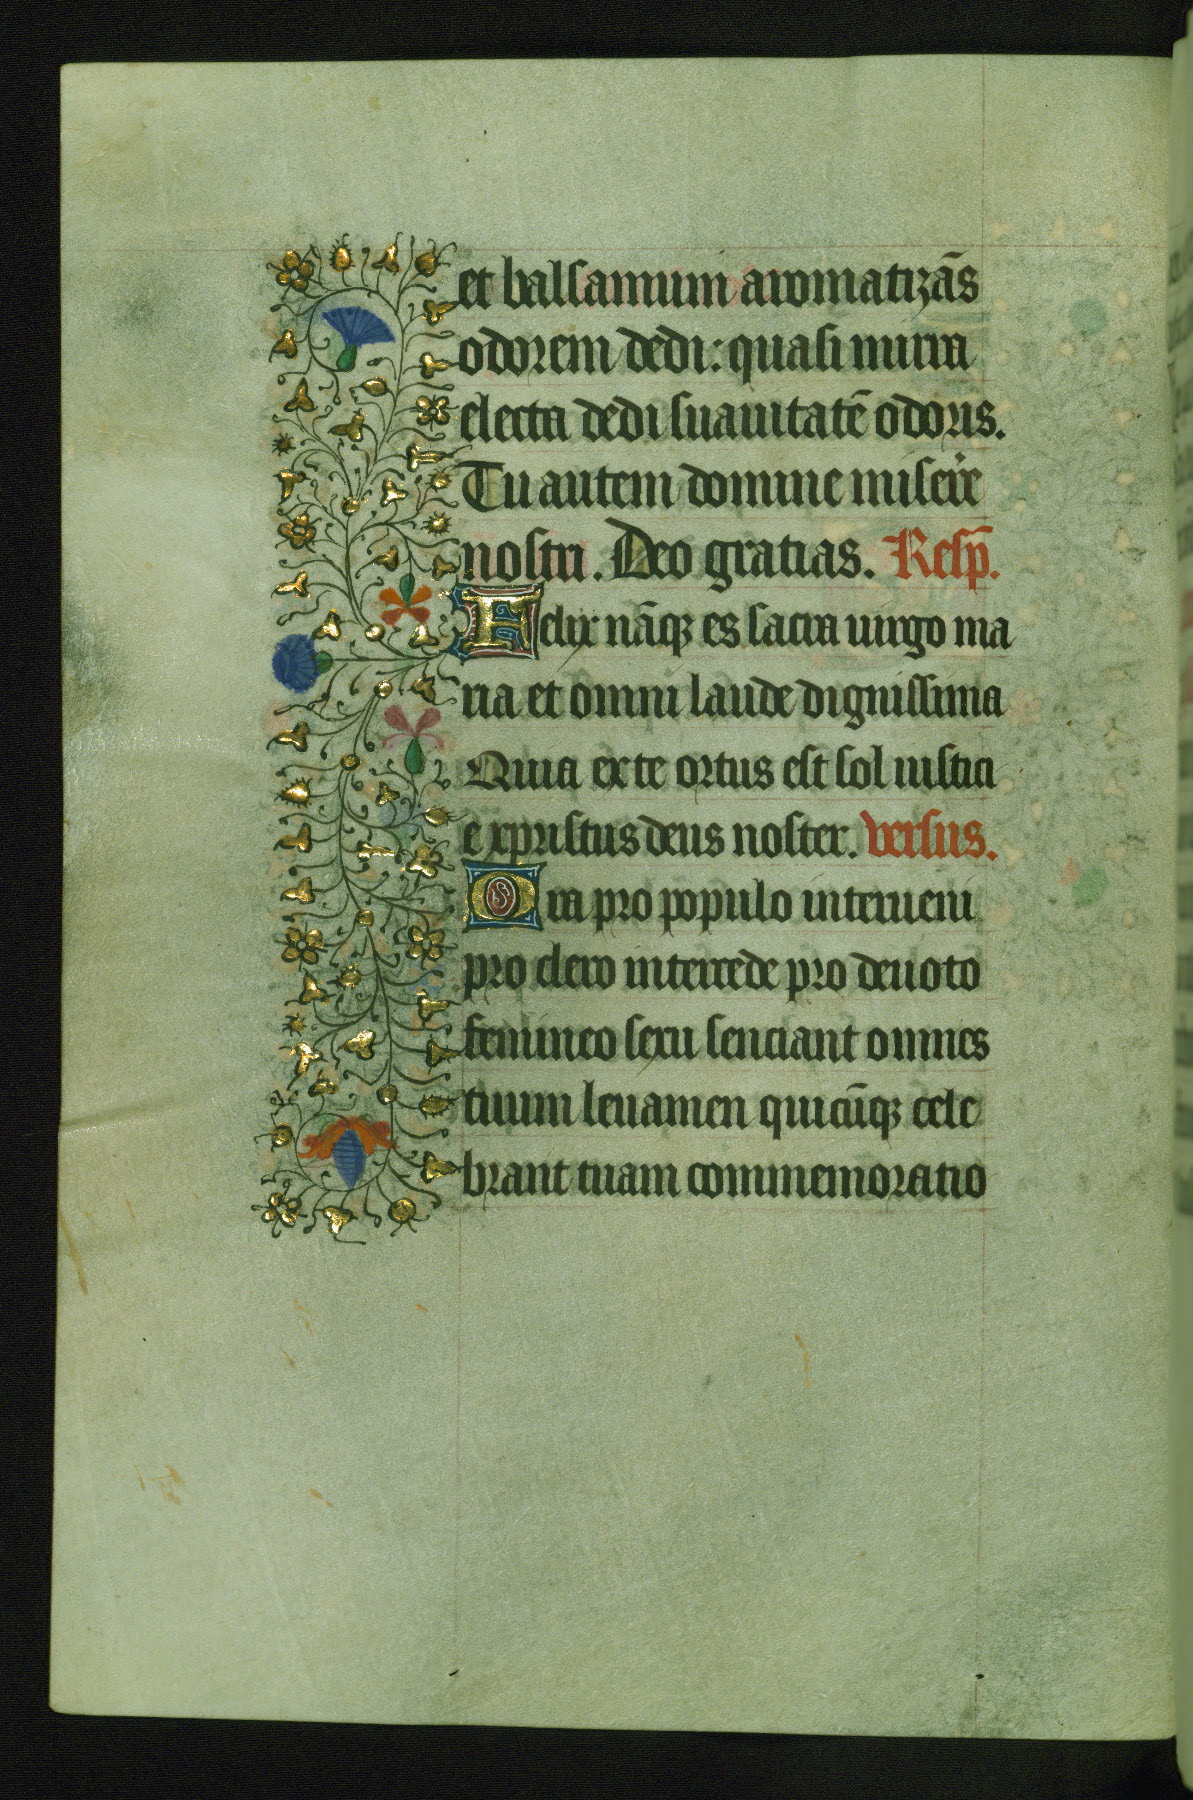 et balsamum aromatizās
odorem dedi: quasi mirra
electa dedi suauitatē odoris.
Tu autem domine miser̃e
nostri. Deo gratias. Resp̄.
Felix nāqꝫ es sacra uirgo ma
ria et omni laude dignissima
Quia ex te ortus est sol iustici
e xpristus deus noster. versus.
Ora pro populo interueni
pro clero intercede pro deuoto
femineo sexu senciant omnes
tuum leuamen quicūqꝫ cele
brant tuam commemoratio